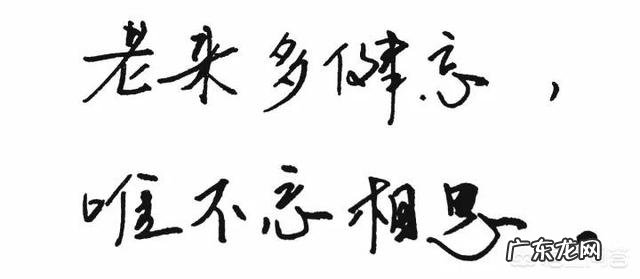 老来多健忘，
唯不忘相思。
广东龙网